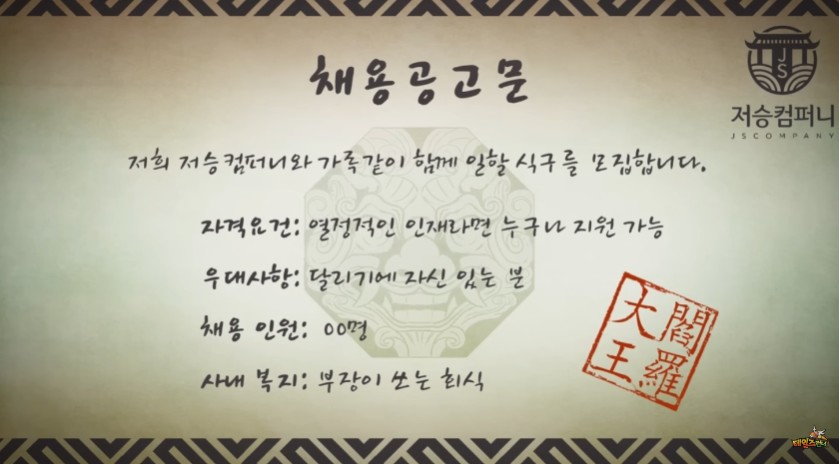 채용공고문
JS
저승컴퍼니
JSCOMPANY
저희 저승컴퍼니와 가족같이 함께 일할 식구를 모집합니다.
자격요건: 열정적인 인재라면 누구나 지원 가능
우대사항: 달리기에 자신 있는 분
채용 인원: 00명
사내 복지: 부장이 쏘는 회식
閻羅
大王
테일즈런너